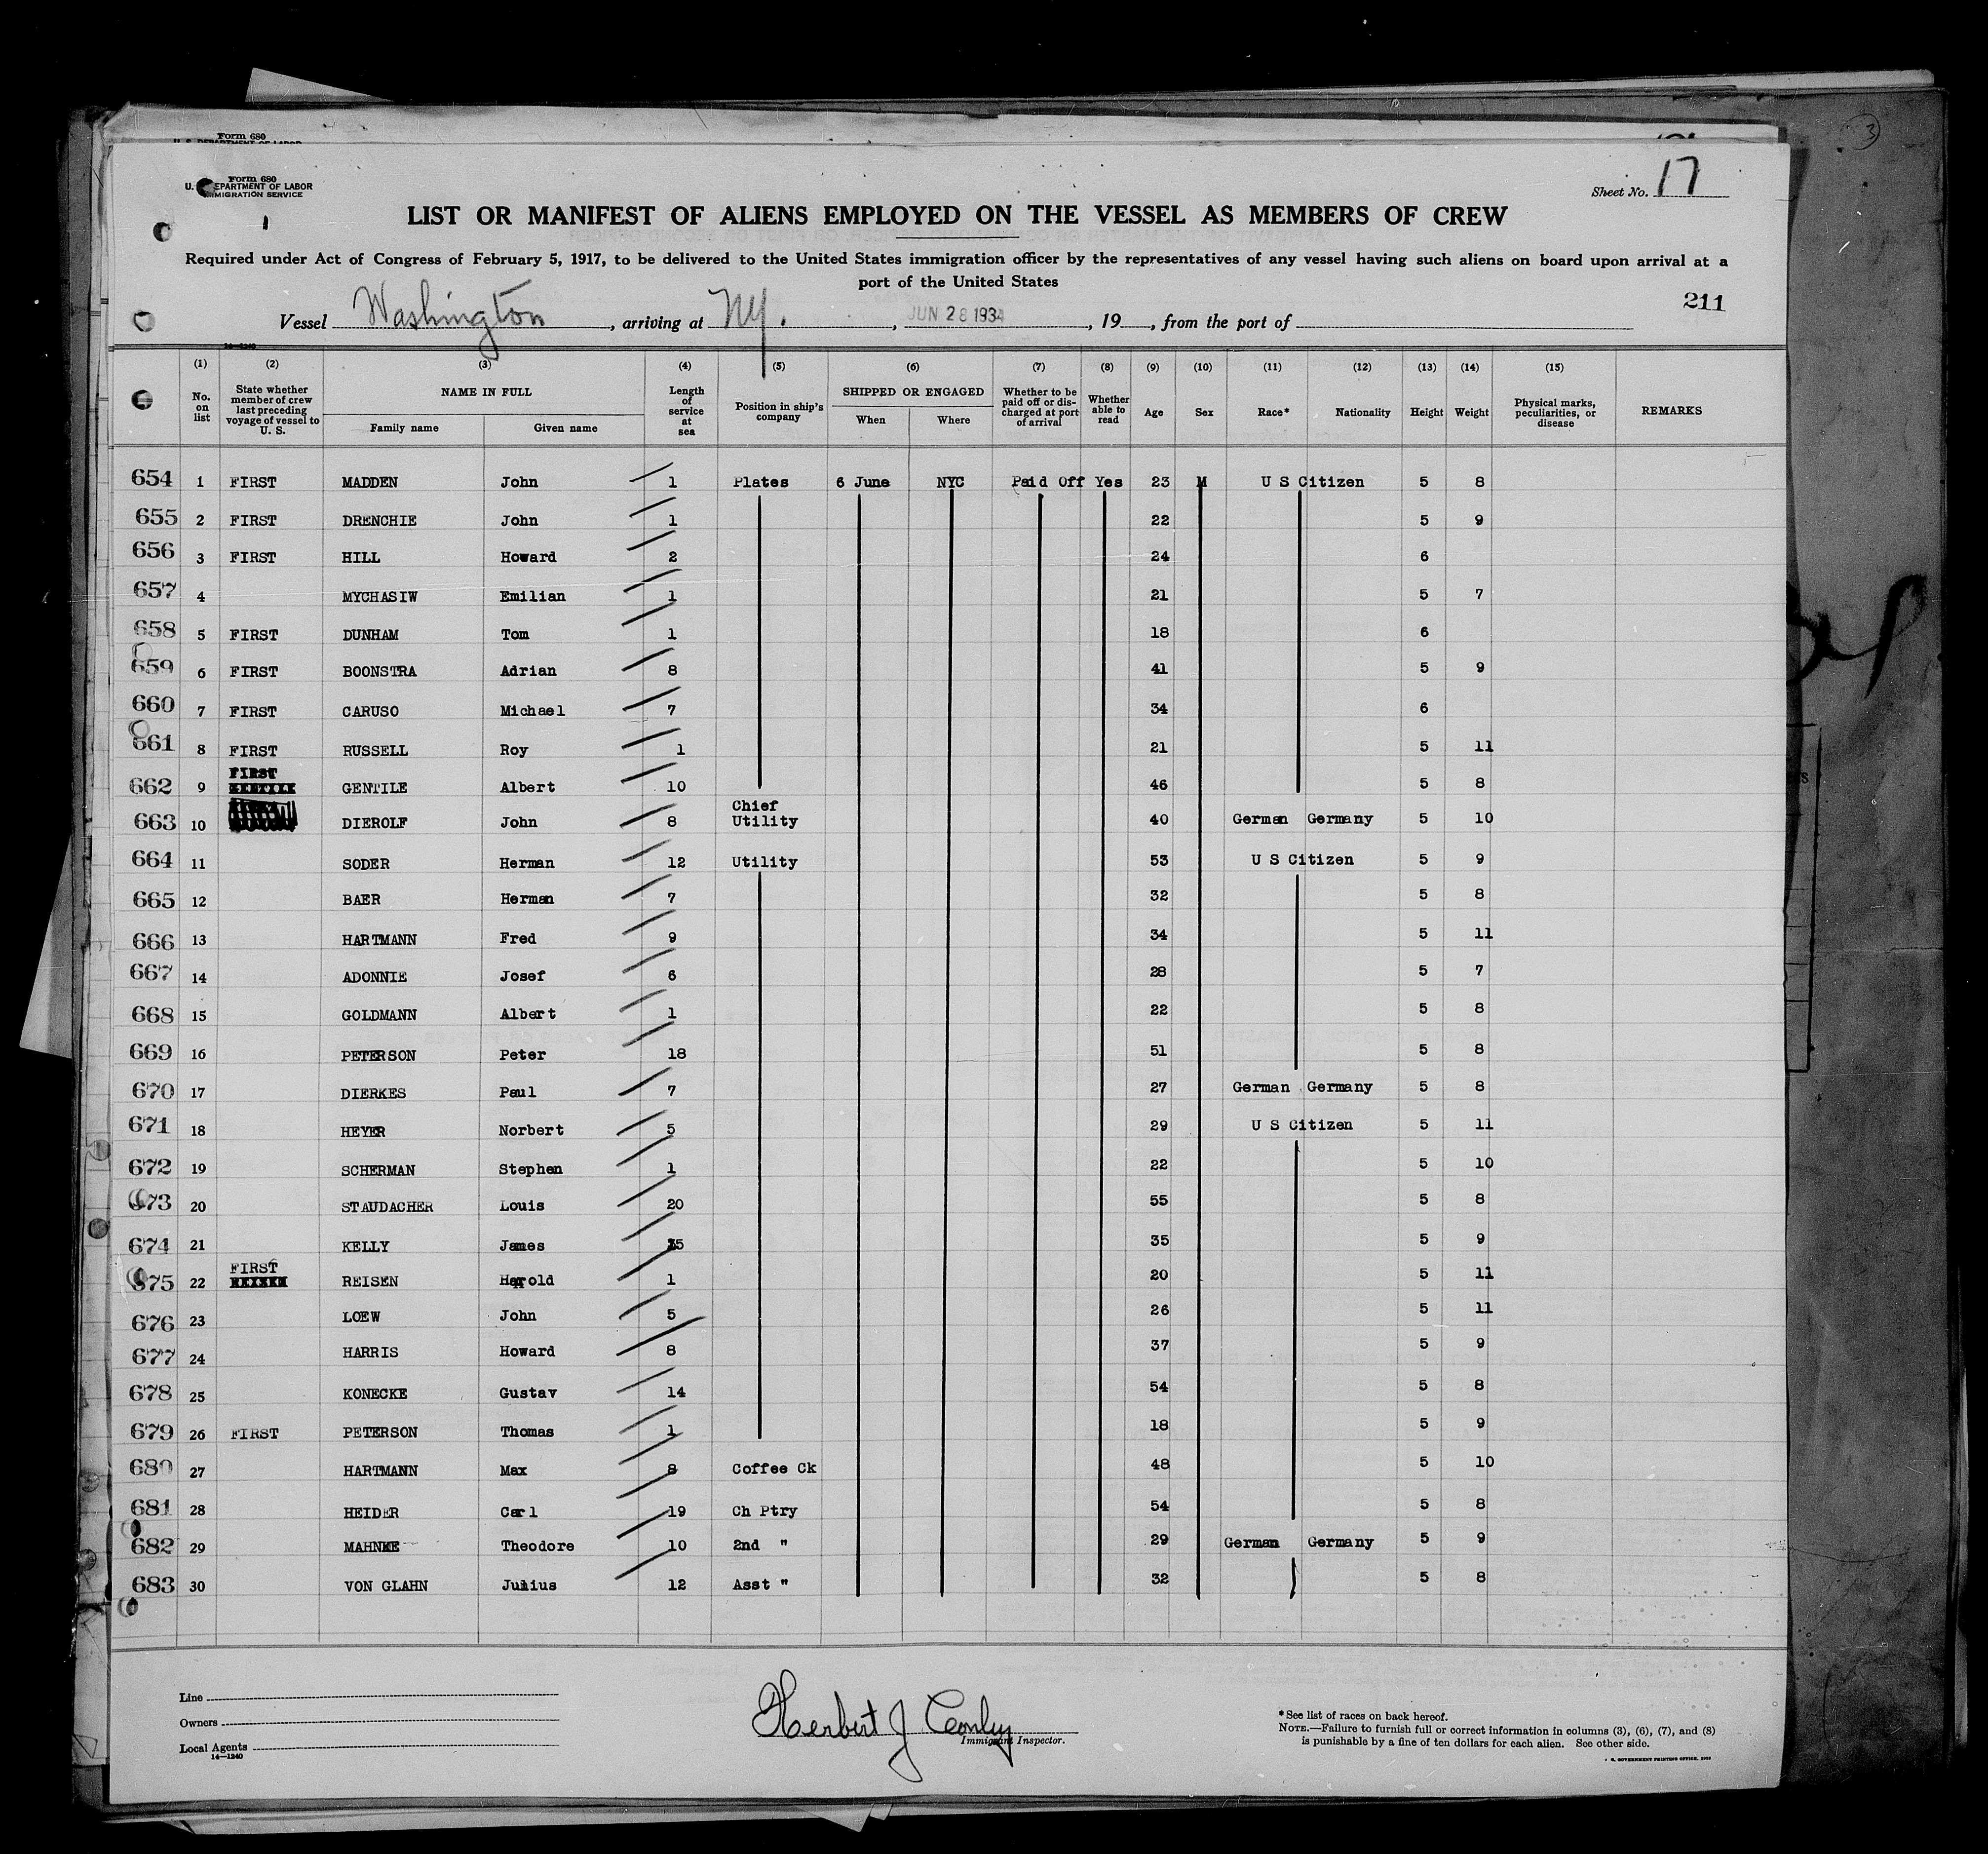 Form 680
Form 680
U. S. DEPARTMENT OF LABOR
IMMIGRATION SERVICE
Sheet No. 17
LIST OR MANIFEST OF ALIENS EMPLOYED ON THE VESSEL AS MEMBERS OF CREW
Required under Act of Congress of February 5, 1917, to be delivered to the United States immigration officer by the representatives of any vessel having such aliens on board upon arrival at a
port of the United States
211
Vessel Washington, arriving at NY. , JUN 28 1934, 19 , from the port of
14—1240
(1) (2) (3) (4) (5) (6) (7) (8) (9) (10) (11) (12) (13) (14) (15)
No. on list State whether member of crew last preceding voyage of vessel to U. S. NAME IN FULL Family name Given name Length of service at sea Position in ship's company SHIPPED OR ENGAGED When Where Whether to be paid off or discharged at port of arrival Whether able to read Age Sex Race* Nationality Height Weight Physical marks, peculiarities, or disease REMARKS
654 1 FIRST MADDEN John 1 Plates 6 June NYC Paid Off Yes 23 M U S Citizen 5 8
655 2 FIRST DRENCHIE John 1 22 5 9
656 3 FIRST HILL Howard 2 24 6
657 4 MYCHASIW Emilian 1 21 5 7
658 5 FIRST DUNHAM Tom 1 18 6
659 6 FIRST BOONSTRA Adrian 8 41 5 9
660 7 FIRST CARUSO Michael 7 34 6
661 8 FIRST RUSSELL Roy 1 21 5 11
662 9 FIRST GENTILE Albert 10 46 5 8
663 10 DIEROLF John 8 Chief Utility 40 German Germany 5 10
664 11 SODER Herman 12 Utility 53 U S Citizen 5 9
665 12 BAER Herman 7 32 5 8
666 13 HARTMANN Fred 9 34 5 11
667 14 ADONNIE Josef 6 28 5 7
668 15 GOLDMANN Albert 1 22 5 8
669 16 PETERSON Peter 18 51 5 8
670 17 DIERKES Paul 7 27 German Germany 5 8
671 18 HEYER Norbert 5 29 U S Citizen 5 11
672 19 SCHERMAN Stephen 1 22 5 10
673 20 STAUDACHER Louis 20 55 5 8
674 21 KELLY James 35 5 9
675 22 FIRST REISEN Harold 1 20 5 11
676 23 LOEW John 5 26 5 11
677 24 HARRIS Howard 8 37 5 9
678 25 KONECKE Gustav 14 54 5 8
679 26 FIRST PETERSON Thomas 1 18 5 9
680 27 HARTMANN Max 8 Coffee Ck 48 5 10
681 28 HEIDER Carl 19 Ch Ptry 54 5 8
682 29 MAHNKE Theodore 10 2nd " 29 German Germany 5 9
683 30 VON GLAHN Julius 12 Asst " 32 5 8
Line
Owners
Local Agents
14—1240
Herbert J Conley
Immigrant Inspector.
*See list of races on back hereof.
NOTE.—Failure to furnish full or correct information in columns (3), (6), (7), and (8)
is punishable by a fine of ten dollars for each alien. See other side.